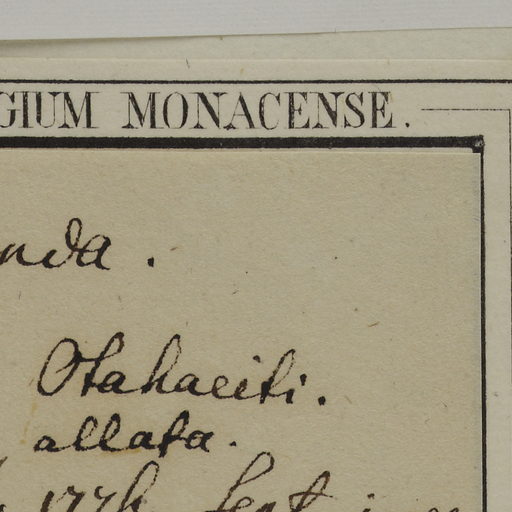 GIUM MONACENSE.
nda.
Otahaeiti.
allata.
1776 Sept.